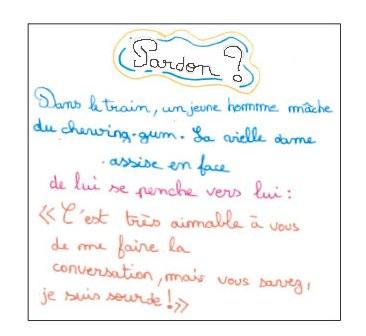 Pardon ?
Dans le train, un jeune homme mâche
du chewing-gum. La vielle dame
assise en face
de lui se penche vers lui :
« C'est très aimable à vous
de me faire la
conversation, mais vous savez,
je suis sourde ! »